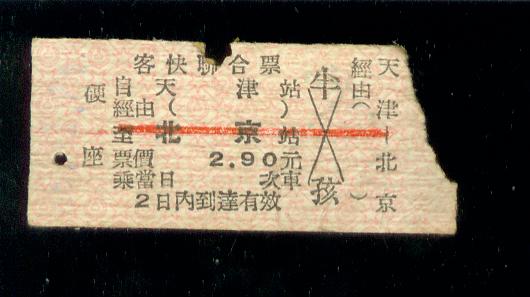 客快聯合票
硬座
自天津站
經由( )
至北京站
票價 2.90元
乘當日 次車
2日內到達有效
半孩
經由( )
天津—北京